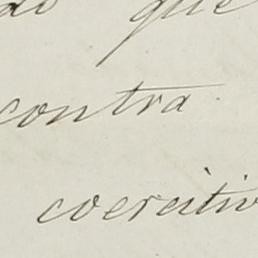 do que
contra
coercitiv